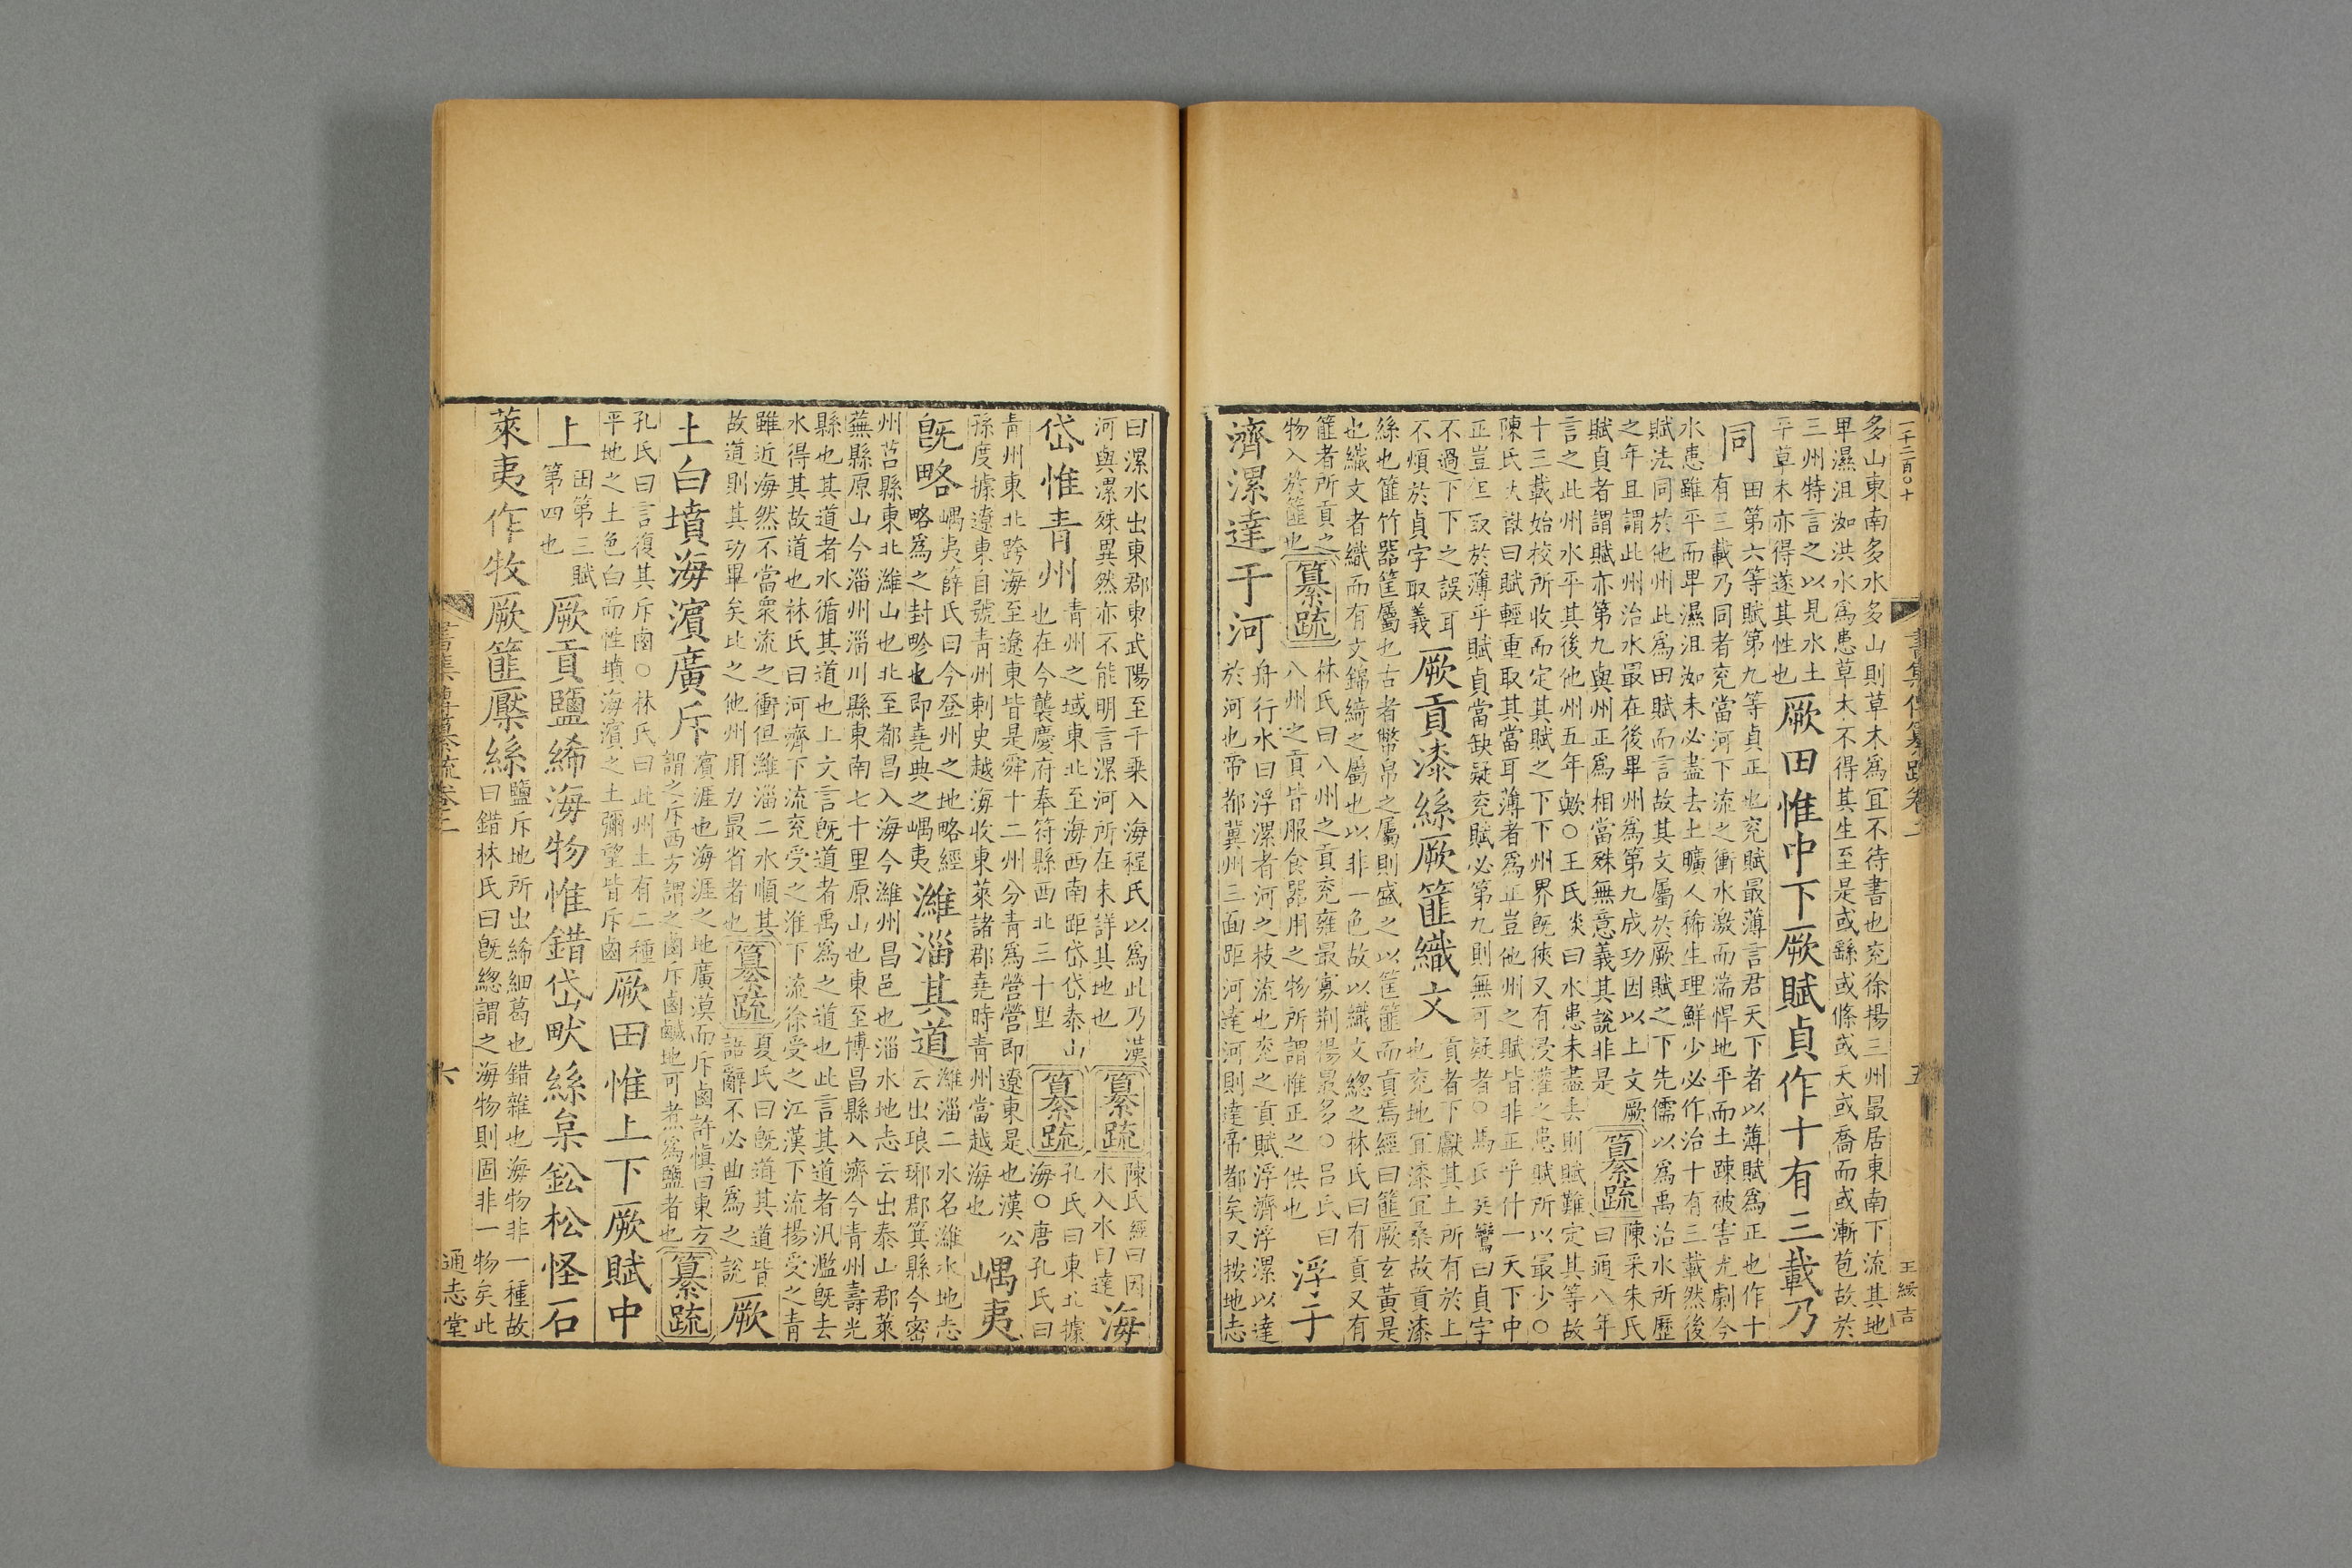 一千二百〇十
多山東南多水多山則草木爲宜不待書也兖徐揚三州最居東南下流其地
卑濕沮洳洪水爲患草木不得其生至是或繇或條或夭或喬而或漸苞故於
三州特言之以見水土
平草木亦得遂其性也
厥田惟中下厥賦貞作十有三載乃
同
田第六等賦第九等貞正也兖賦最薄言君天下者以薄賦爲正也作十
有三載乃同者兖當河下流之衝水激而湍悍地平而土踈被害尤劇今
水患雖平而卑濕沮洳未必盡去土曠人稀生理鮮少必作治十有三載然後
賦法同於他州此爲田賦而言故其文屬於厥賦之下先儒以爲禹治水所歷
之年且謂此州治水最在後畢州爲第九成功因以上文厥
賦貞者謂賦亦第九與州正爲相當殊無意義其說非是
纂疏
陳采朱氏
曰通八年
言之此州水平其後他州五年歟○王氏炎曰水患未盡去則賦難定其等故
十三載始校所收而定其賦之下下州界旣狹又有浸灌之患賦所以最少○
陳氏大猷曰賦輕重取其當耳薄者爲正豈他州之賦皆非正乎什一天下中
正豈但取於薄乎賦貞當缺疑兖賦必第九則無可疑者○馬氏廷鸞曰貞字
不過下下之誤耳
不煩於貞字取義
厥貢漆絲厥篚織文
貢者下獻其土所有於上
也兖地宜漆宜桑故貢漆
絲也篚竹器筐屬也古者幣帛之屬則盛之以筐篚而貢焉經曰篚厥玄黃是
也織文者織而有文錦綺之屬也以非一色故以織文緫之林氏曰有貢又有
篚者所貢之
物入於篚也
纂疏
林氏曰八州之貢兖雍最寡荆揚最多○呂氏曰
八州之貢皆服食器用之物所謂惟正之供也
浮于
濟漯達于河
舟行水曰浮漯者河之枝流也兖之貢賦浮濟浮漯以達
於河也帝都冀州三面距河達河則達帝都矣又按地志
書集傳纂疏卷二
五
王綏吉
曰漯水出東郡東武陽至千乘入海程氏以爲此乃漢
河與漯殊異然亦不能明言漯河所在未詳其地也
纂疏
陳氏經曰因
水入水曰達
海
岱惟青州
青州之域東北至海西南距岱岱泰山
也在今襲慶府奉符縣西北三十里
纂疏
孔氏曰東北據
海○唐孔氏曰
青州東北跨海至遼東皆是舜十二州分青爲營營即遼東是也漢公
孫度據遼東自號青州刺史越海收東萊諸郡堯時青州當越海也
嵎夷
旣略
嵎夷薛氏曰今登州之地略經
略爲之封畛也即堯典之嵎夷
濰淄其道
濰淄二水名濰水地志
云出琅琊郡箕縣今密
州莒縣東北濰山也北至都昌入海今濰州昌邑也淄水地志云出泰山郡萊
蕪縣原山今淄州淄川縣東南七十里原山也東至博昌縣入濟今青州壽光
縣也其道者水循其道也上文言旣道者禹爲之道也此言其道者汎濫旣去
水得其故道也林氏曰河濟下流兖受之淮下流徐受之江漢下流揚受之青
雖近海然不當衆流之衝但濰淄二水順其
故道則其功畢矣比之他州用力最省者也
纂疏
夏氏曰旣道其道皆
語辭不必曲爲之說
厥
土白墳海濱廣斥
濱涯也海涯之地廣漠而斥鹵許愼曰東方
謂之斥西方謂之鹵斥鹵鹹地可煮爲鹽者也
纂疏
孔氏曰言復其斥鹵○林氏曰此州土有二種
平地之土色白而性墳海濱之土彌望皆斥鹵
厥田惟上下厥賦中
上
田第三賦
第四也
厥貢鹽絺海物惟錯岱畎絲枲鈆松怪石
萊夷作牧厥篚檿絲
鹽斥地所出絺細葛也錯雜也海物非一種故
曰錯林氏曰旣緫謂之海物則固非一物矣此
書集傳纂疏卷二
六
通志堂